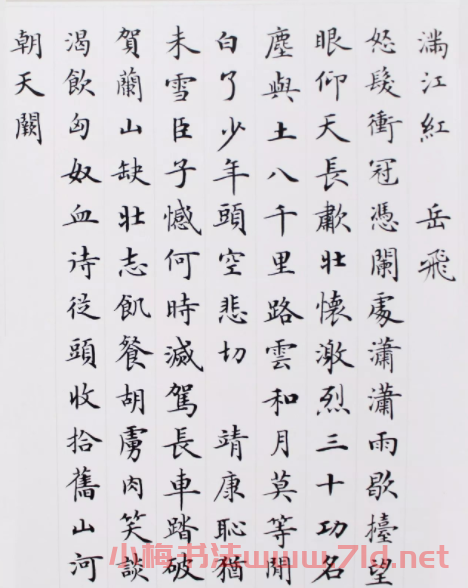 滿江紅 岳飛
怒髮衝冠憑闌處瀟瀟雨歇擡望
眼仰天長歗壯懷激烈三十功名
塵與土八千里路雲和月莫等閒
白了少年頭空悲切 靖康恥猶
未雪臣子憾何時滅駕長車踏破
賀蘭山缺壯志飢餐胡虜肉笑談
渴飲匈奴血待從頭收拾舊山河
朝天闕
小梅书法www.7ld.net